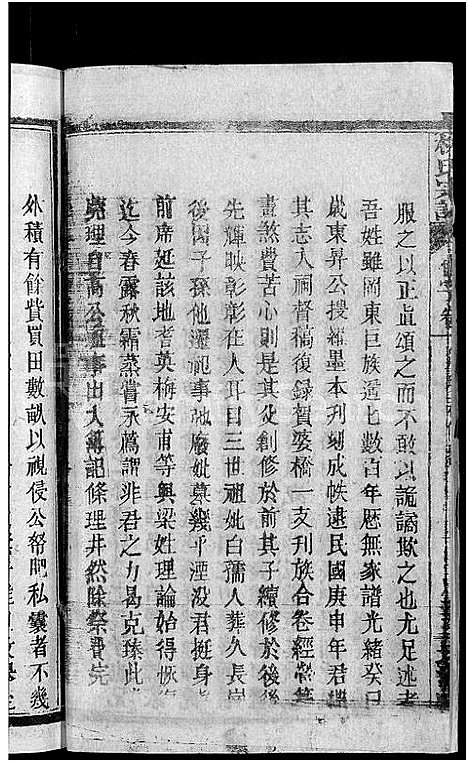 服之以正眞頌之而不敢以詭譎欺之也尤足述者
吾姓雖岡東巨族遞七數百年歷無家譜光緒癸巳
歲東昇公搜羅墨本刊刻成帙逮民國庚申年君繼
其志入祠督稿復録賀婆橋一支刊族合卷經營籌
畫煞費苦心則是其父創修於前其子續修於後後
先輝映彰彰在人耳目三世祖妣白孺人葬久長崗
後因子孫他遷祀事弛廢妣墓幾乎湮没君挺身
前席延該地耆英梅安甫等與梁姓理論始得恢
迄今春露秋霜蒸嘗永薦謂非君之力曷克臻此
堯理自高公經事出入簿記條理井然除祭費完
外積有餘貲買田數畝以視侵公帑肥私囊者不幾